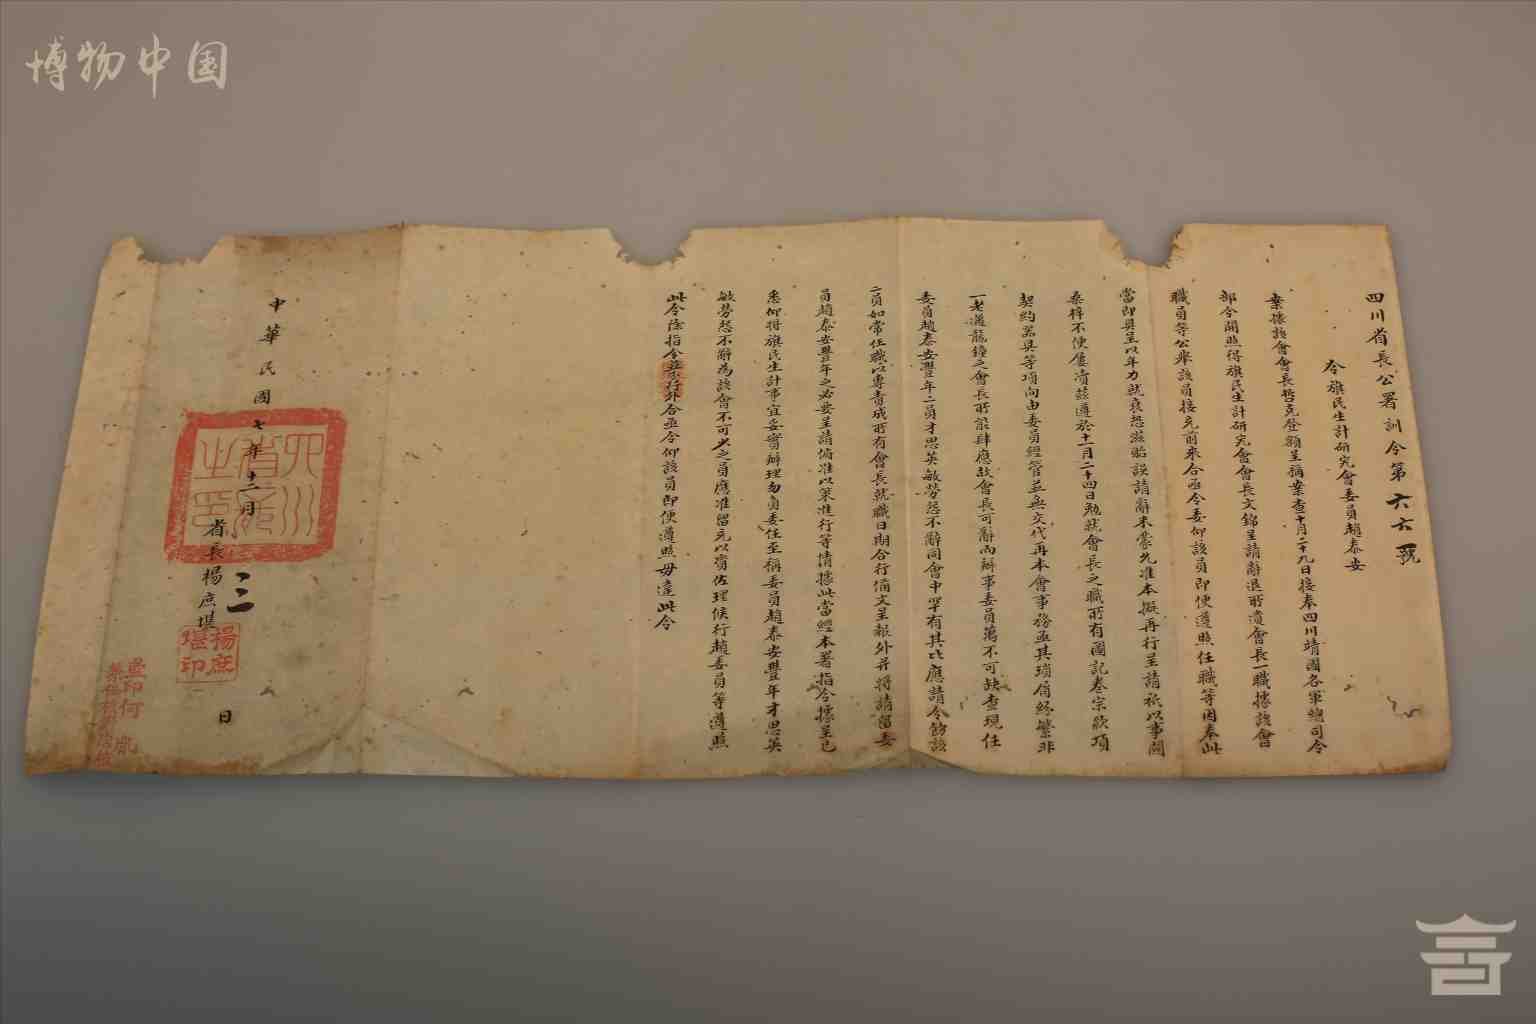 博物中国
四川省長公署訓令第六六號
令旗民生計研究會委員趙泰安
案據該會會長哲克登額呈稱案查十月二十九日接奉四川靖國各軍總司令
部令開照得旗民生計研究會會長文錦呈請辭退所遺會長一職據該會
職員等公舉該員接充前來合亟令委仰該員即便遵照任職等因奉此
當即具呈以年力就衰恐滋貽誤請辭未蒙允准本擬再行呈請祇以事關
桑梓不便屢瀆茲遵於十一月二十四日勉就會長之職所有圖記奏宗款項
契約器具等項向由委員經管並無交代再本會事務亟其瑣屑紛繁非
一老邁龍鐘之會長所能肆應故會長可辭而辦事委員萬不可缺查現任
委員趙泰安豐年二員才思英敏勞怨不辭同會中罕有其比應請令飭該
二員如常任職以專責成所有會長就職日期合行備文呈報外并將請留委
員趙泰安豐年之必要呈請俯准以策進行等情據此當經本署指令據呈已
悉仰將旗民生計事宜妥實辦理勿負委任至稱委員趙泰安豐年才思英
敏勞怨不辭為該會不可少之員應准留充以資佐理候行趙委員等遵照
此令除指令並分行外合亟令仰該員即便遵照毋違此令
中華民國七年十二月 二三 日
省長楊庶堪
四川省長之印
楊庶堪印
監印何